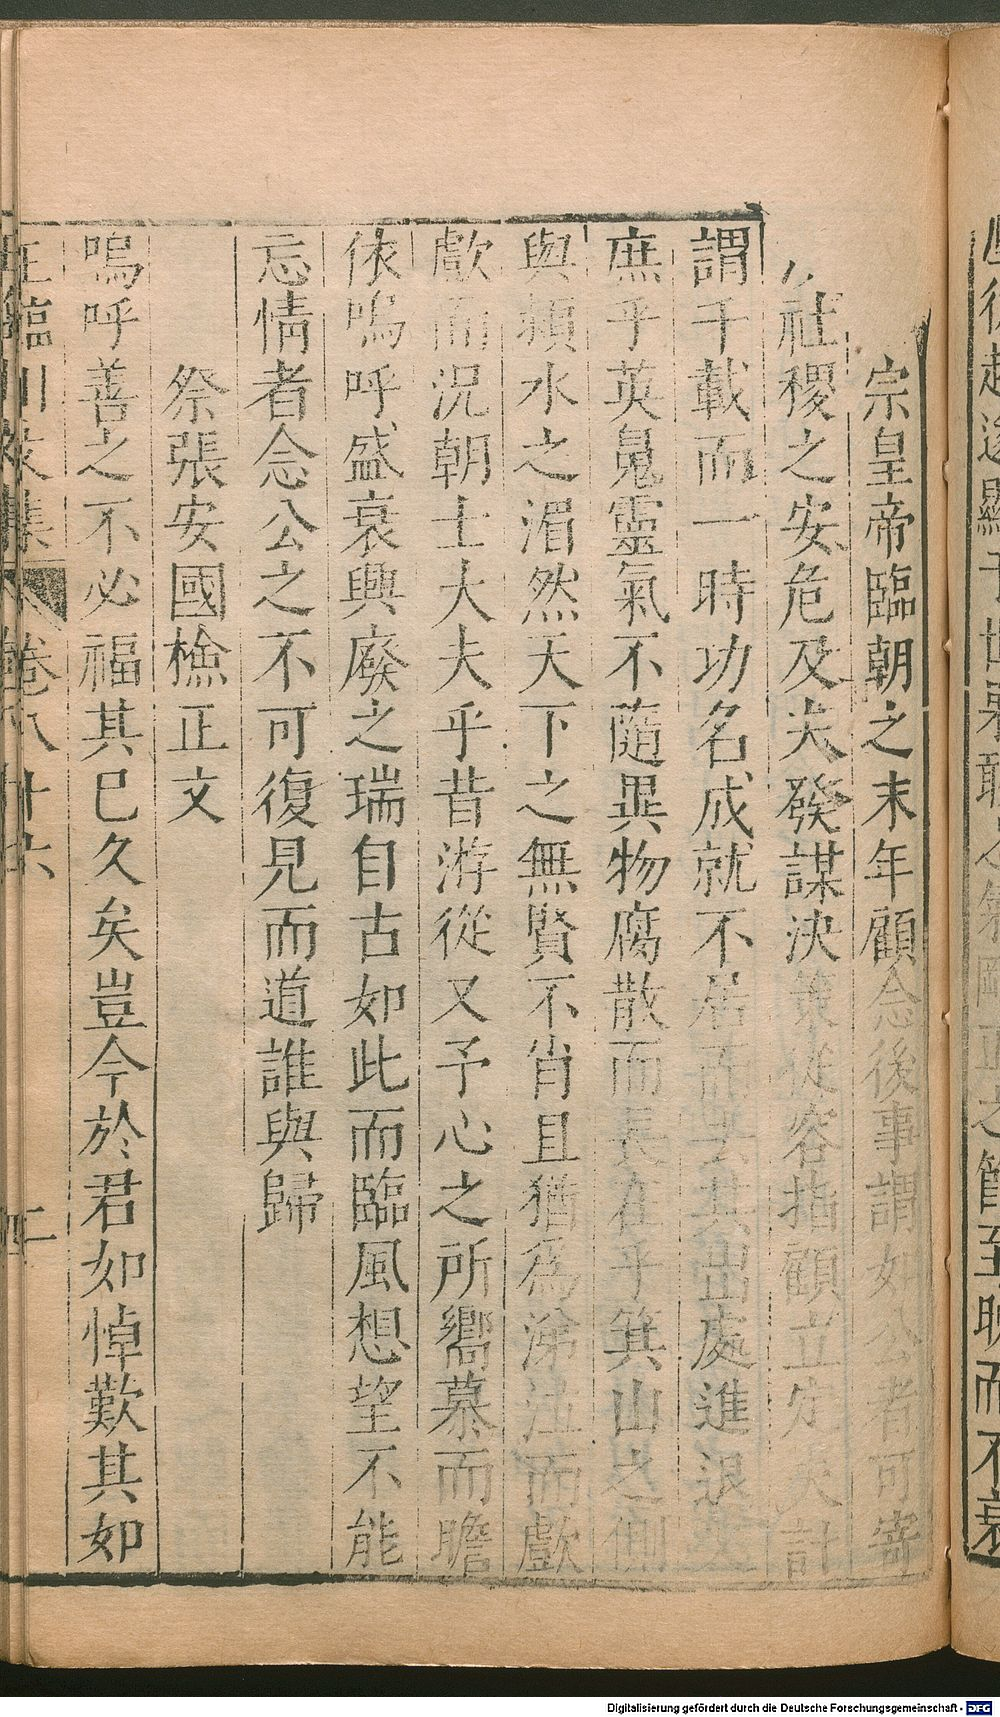 宗皇帝臨朝之末年顧念後事謂如公者可寄
社稷之安危及夫發謀決策從容指顧立定大計
謂千載而一時功名成就不居而去其出處進退又
庶乎英鬼靈氣不隨異物腐散而長在乎箕山之側
與潁水之湄然天下之無賢不肖且猶爲涕泣而歔
歔而況朝士大夫乎昔游從又予心之所嚮慕而瞻
依嗚呼盛衰興廢之瑞自古如此而臨風想望不能
忘情者念公之不可復見而道誰與歸
祭張安國檢正文
嗚呼善之不必福其已久矣豈今於君如悼歎其如
王臨川文集 卷八十六 二
Digitalisierung gefördert durch die Deutsche Forschungsgemeinschaft - DFG